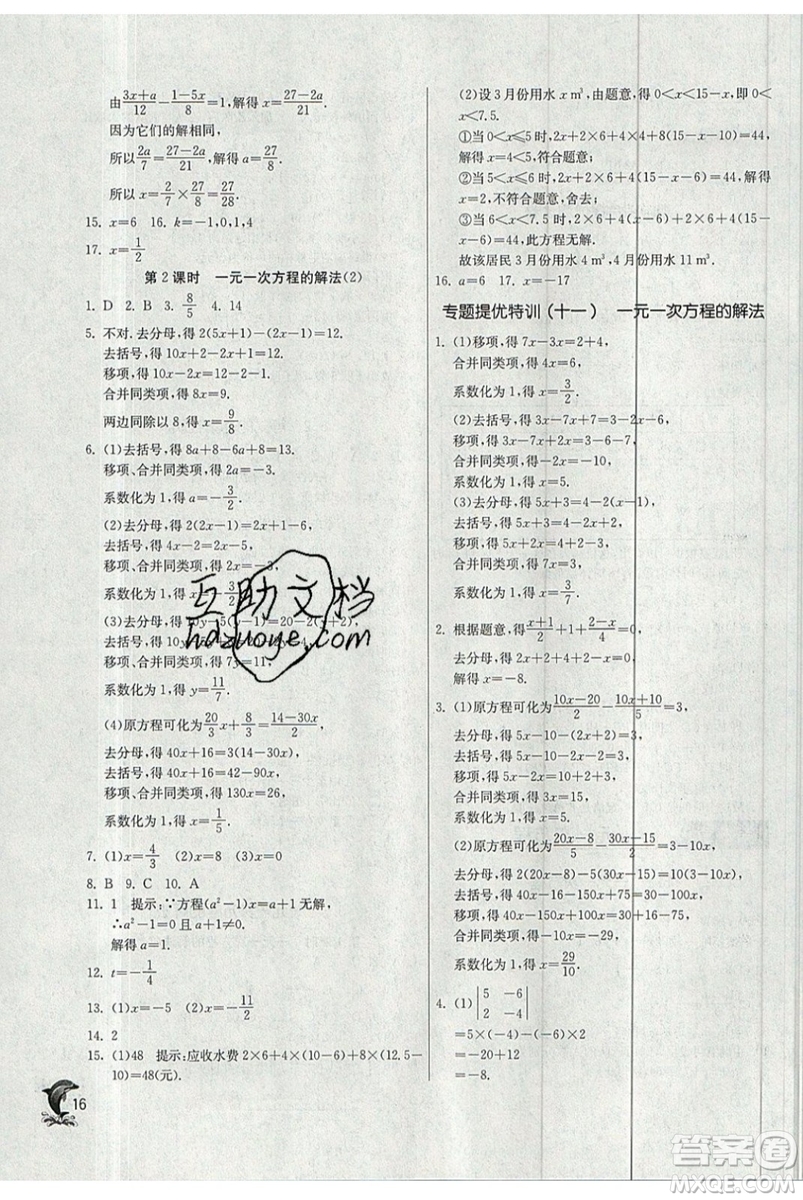 由\frac{3x+a}{12}-\frac{1-5x}{8}=1,解得 x=\frac{27-2a}{21}.
因为它们的解相同,
所以\frac{2a}{7}=\frac{27-2a}{21},解得 a=\frac{27}{8}.
所以 x=\frac{2}{7}×\frac{27}{8}=\frac{27}{28}.
15. x=6 16. k=-1,0,1,4
17. x=\frac{1}{2}
第 2 课时 一元一次方程的解法(2)
1. D 2. B 3. \frac{8}{5} 4. 14
5. 不对. 去分母,得 2(5x+1)-(2x-1)=12.
去括号,得 10x+2-2x+1=12.
移项,得 10x-2x=12-2-1.
合并同类项,得 8x=9.
两边同除以 8,得 x=\frac{9}{8}.
6. (1)去括号,得 8a+8-6a+8=13.
移项、合并同类项,得 2a=-3.
系数化为 1,得 a=-\frac{3}{2}.
(2)去分母,得 2(2x-1)=2x-5,
去括号,得 4x-2=2x-5,
移项、合并同类项,得 2x=-3,
系数化为 1,得 x=-\frac{3}{2}.
(3)去分母,得 10y-5(y-1)=20-2(y+2),
去括号,得 10y-5y+5=20-2y-4,
移项、合并同类项,得 7y=11,
系数化为 1,得 y=\frac{11}{7}.
(4)原方程可化为\frac{20}{3}x+\frac{8}{3}=\frac{14-30x}{2},
去分母,得 40x+16=3(14-30x),
去括号,得 40x+16=42-90x,
移项、合并同类项,得 130x=26,
系数化为 1,得 x=\frac{1}{5}.
7. (1)x=\frac{3}{4} (2)x=\frac{8}{3}
8. B 9. C 10. A
11. 1 提示:∵方程(a²-1)x=a+1 无解,
∴a²-1=0 且 a+1≠0.
解得 a=1.
12. t=-\frac{1}{4}
13. (1)x=-5 (2)x=-\frac{11}{2}
14. 2
15. (1)48 提示:应收水费 2×6+4×(10-6)+8×(12.5-
10)=48(元).
(2)设 3 月份用水 x m³,由题意,得 0<x<15-x,即 0<
x<7.5.
①当 0<x≤5 时,2x+2×6+4×4+8(15-x-10)=44,
解得 x=4<5,符合题意;
②当 5<x≤6 时,2x+2×6+4(15-x-6)=44,解得
x=2,不符合题意,舍去;
③当 6<x<7.5 时,2×6+4(x-6)+2×6+4(15-x-
6)=44,此方程无解.
故该居民 3 月份用水 4 m³,4 月份用水 11 m³.
16. a=6 17. x=-17
专题提优特训(十一) 一元一次方程的解法
1. (1)移项,得 7x-3x=2+4,
合并同类项,得 4x=6,
系数化为 1,得 x=\frac{3}{2}.
(2)去括号,得 3x-7x+7=3-2x-6,
移项,得 3x-7x+2x=3-6-7,
合并同类项,得-2x=-10,
系数化为 1,得 x=5.
(3)去分母,得 5x+3=6-2(x-1),
去括号,得 5x+3=6-2x+2,
移项,得 5x+2x=6+2-3,
合并同类项,得 7x=5,
系数化为 1,得 x=\frac{5}{7}.
2. 根据题意,得\frac{x+1}{2}+1+\frac{2-x}{4}=0,
去分母,得 2x+2+4+2-x=0,
解得 x=-8.
3. (1)原方程可化为\frac{10x-20}{2}-\frac{10x+10}{5}=3,
去分母,得 5x-10-(2x+2)=3,
去括号,得 5x-10-2x-2=3,
移项、合并同类项,得 3x=15,
系数化为 1,得 x=5.
(2)原方程可化为\frac{20x-8}{5}-\frac{30x-15}{2}=3-10x,
去分母,得 2(20x-8)-5(30x-15)=10(3-10x),
去括号,得 40x-16-150x+75=30-100x,
移项,得 40x-150x+100x=30+16-75,
合并同类项,得-10x=-29,
系数化为 1,得 x=\frac{29}{10}.
4. (1)|5 -6|
|2 -4|
=5×(-4)-2×(-6)
=-20+12
=-8.
16
互助文档
hdzuoye.com
答案圈
MXQE.COM